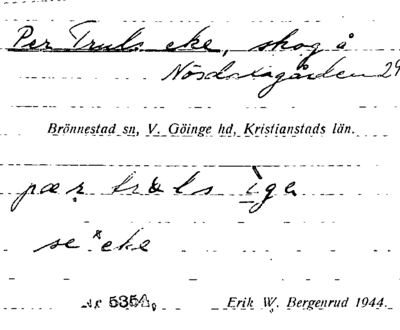 Per Truls eke, skog å
Nösdalagården 24
Brönnestad sn, V. Göinge hd, Kristianstads län.
pær trəls ìge
se: eke
Nr 5354.
Erik W. Bergenrud 1944.